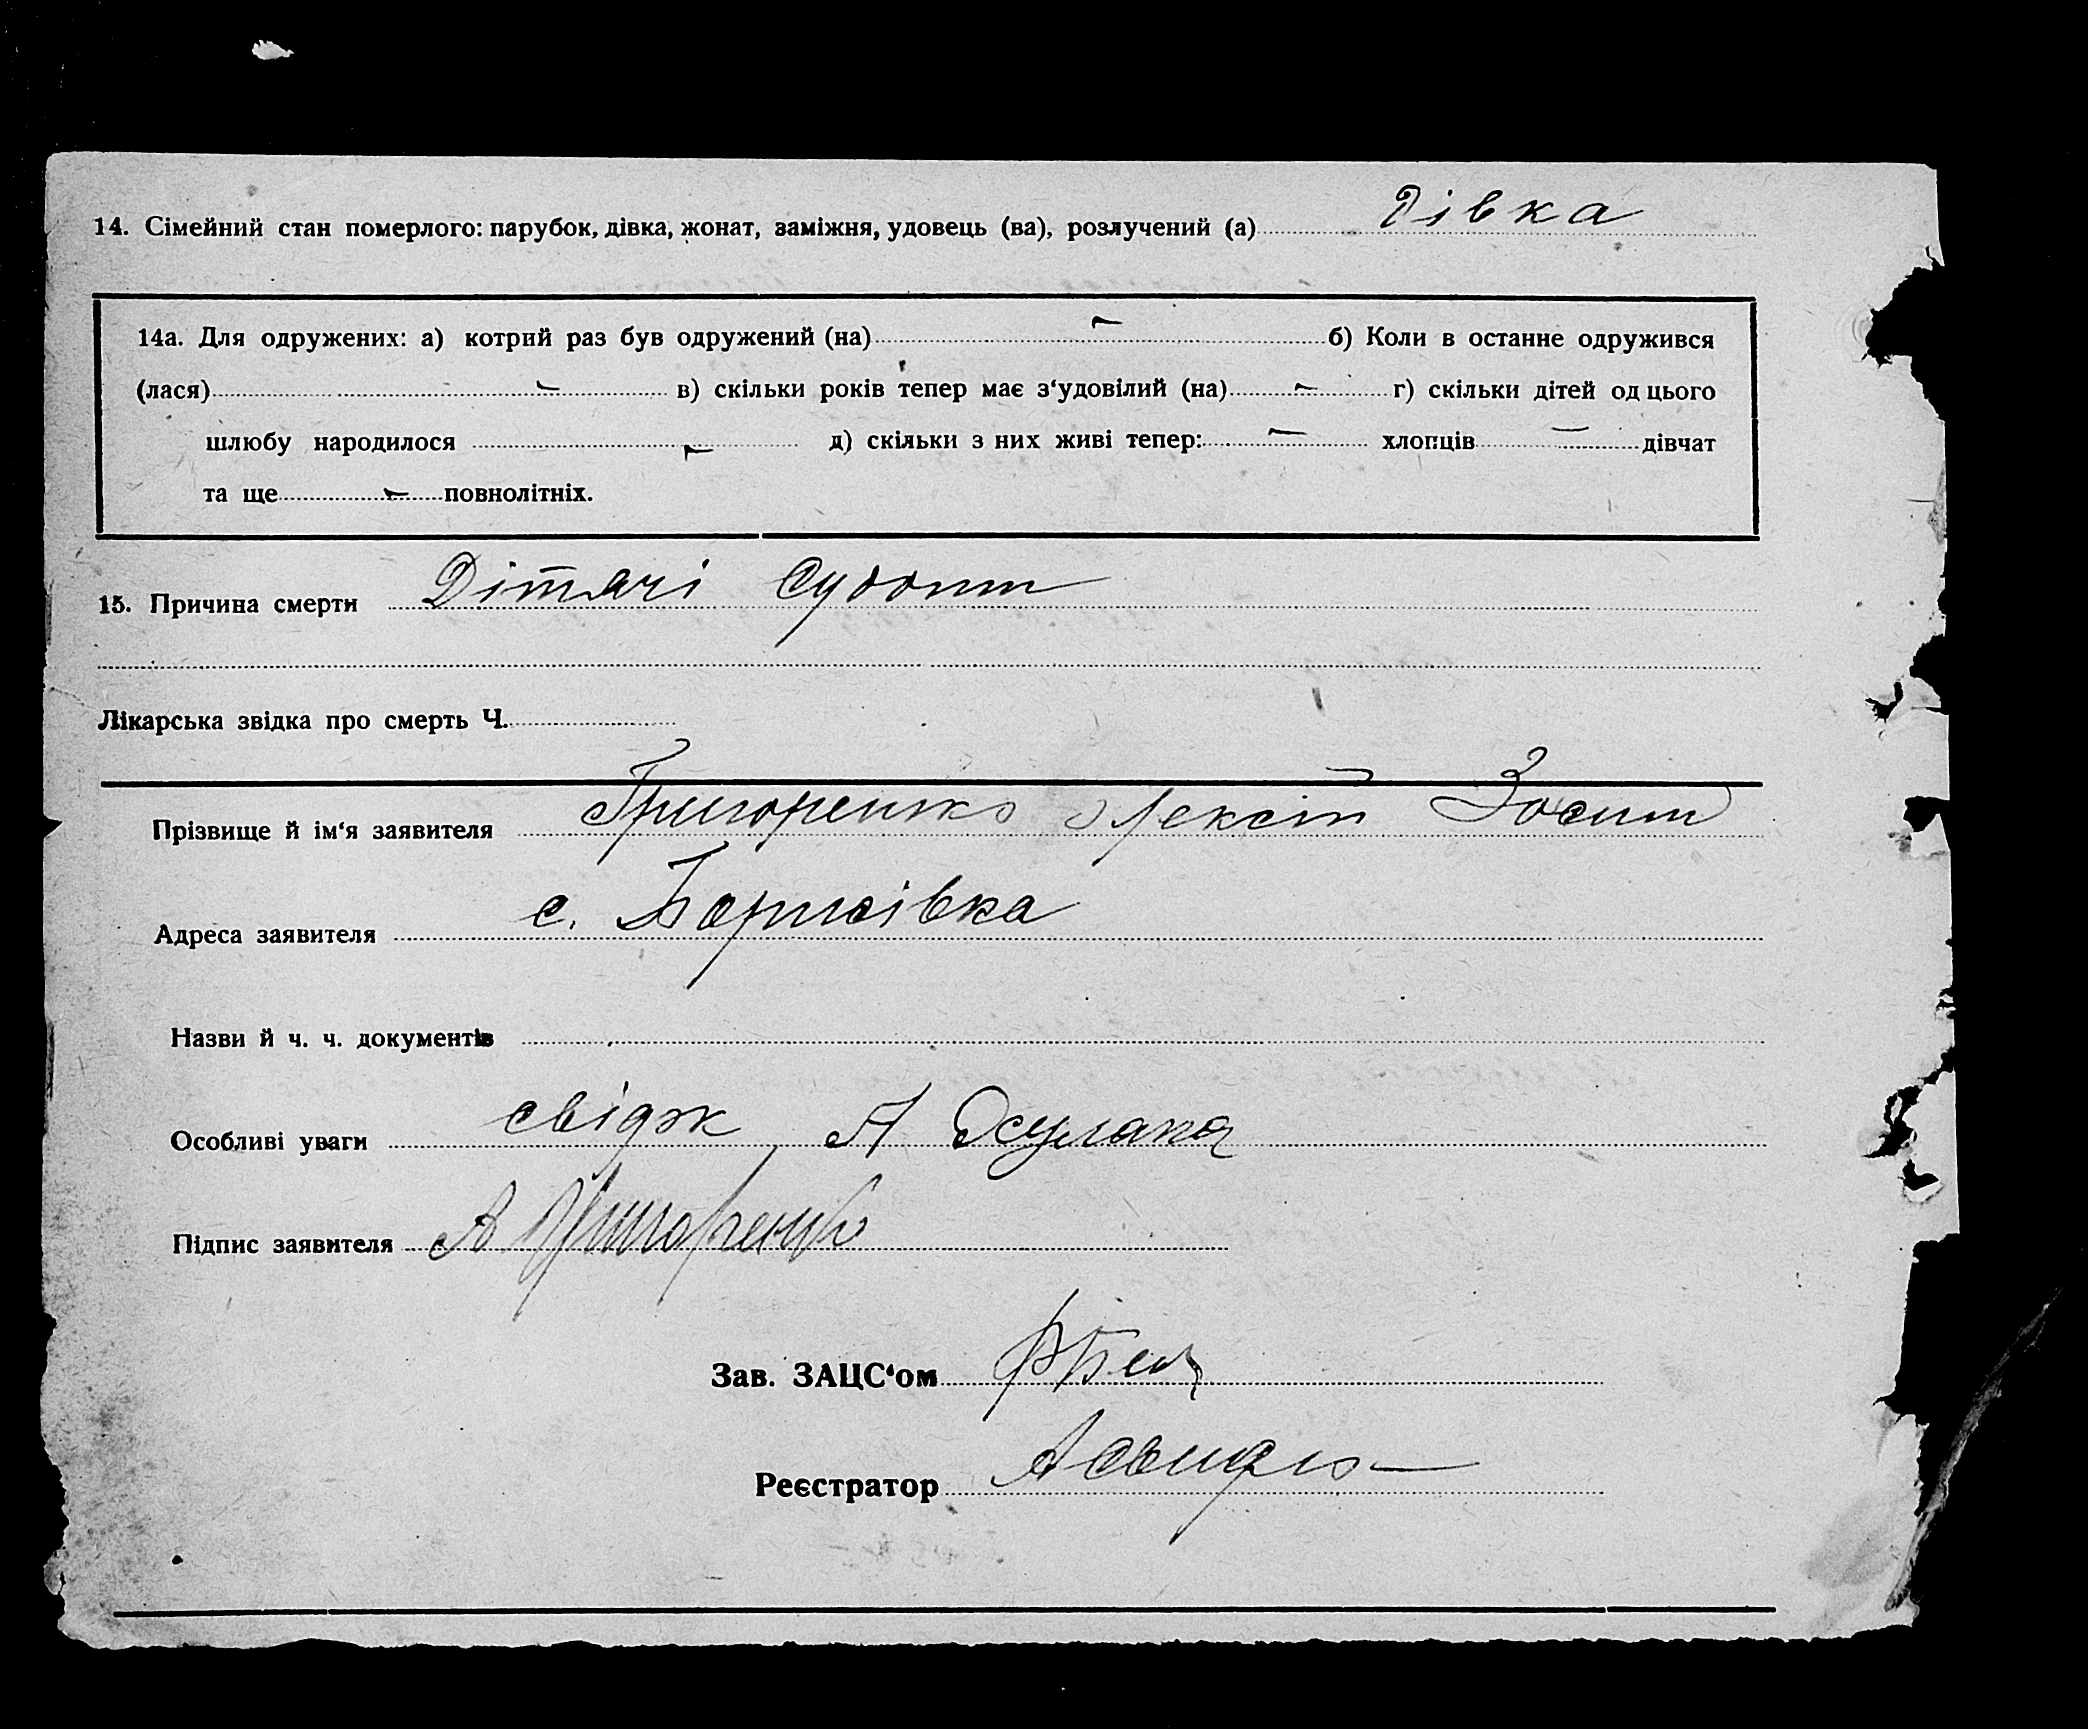 14. Сімейний стан померлого: парубок, дівка, жонат, заміжня, удовець (ва), розлучений (а) Дівка
14а. Для одружених: а) котрий раз був одружений (на) — б) Коли в останне одружився
(лася) — в) скільки років тепер має з‘удовілий (на) — г) скільки дітей од цього
шлюбу народилося — д) скільки з них живі тепер: — хлопців — дівчат
та ще — повнолітніх.
15. Причина смерти Дітячі
Лікарська звідка про смерть Ч.
Прізвище й ім‘я заявителя Григоренко Олексій Зосим
Адреса заявителя с. Борисівка
Назви й ч. ч. документів
Особливі уваги свідок А
Підпис заявителя А Григоренко
Зав. ЗАЦС‘ом
Реєстратор